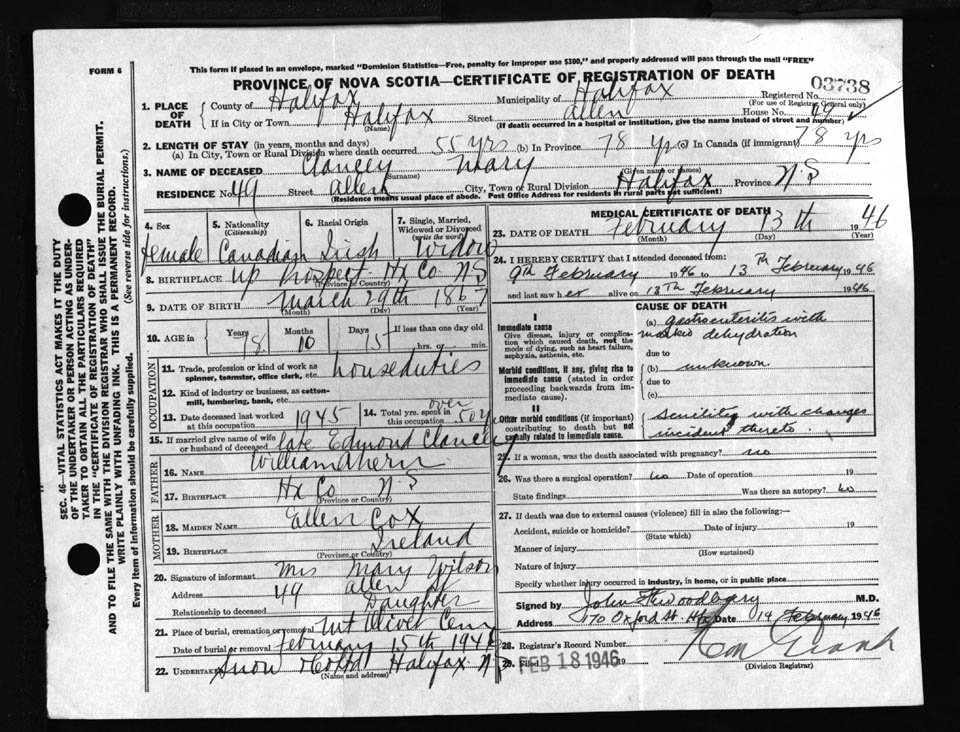 FORM 6
This form if placed in an envelope, marked "Dominion Statistics—Free, penalty for improper use $300," and properly addressed will pass through the mail "FREE"
PROVINCE OF NOVA SCOTIA—CERTIFICATE OF REGISTRATION OF DEATH
03738
Registered No.
(For use of Registrar General only)
1. PLACE OF DEATH
County of Halifax Municipality of Halifax
If in City or Town Halifax Street Allen House No. 49
(Name) (If death occurred in a hospital or institution, give the name instead of street and number)
2. LENGTH OF STAY (in years, months and days)
(a) In City, Town or Rural Division where death occurred 55 yrs (b) In Province 78 yrs (c) In Canada (if immigrant) 78 yrs
3. NAME OF DECEASED Clancey Mary
Surname) (Given name or names)
RESIDENCE No. 49 Street Allen City, Town or Rural Division Halifax Province N S
(Residence means usual place of abode. Post Office Address for residents in rural parts not sufficient)
4. Sex Female
5. Nationality (Citizenship) Canadian
6. Racial Origin Irish
7. Single, Married, Widowed or Divorced (write the word) Widow
8. BIRTHPLACE Up Prospect Hx Co. N S
(Province or Country)
9. DATE OF BIRTH March 29th 1867
(Month) (Day) (Year)
10. AGE in Years 78 Months 10 Days 15 If less than one day old hrs. or min.
OCCUPATION
11. Trade, profession or kind of work as spinner, teamster, office clerk, etc. houseduties
12. Kind of industry or business, as cotton-mill, lumbering, bank, etc.
13. Date deceased last worked at this occupation 1945
14. Total yrs. spent in this occupation over 50 yrs
15. If married give name of wife or husband of deceased late Edmond Clancey
FATHER
16. NAME William Ahern
17. BIRTHPLACE Hx Co. N S
(Province or Country)
MOTHER
18. MAIDEN NAME Ellen Cox
19. BIRTHPLACE Ireland
(Province or Country)
20. Signature of informant Mrs Mary Wilson
Address 49 Allen St
Relationship to deceased Daughter
21. Place of burial, cremation or removal Mt Olivet Cem
Date of burial or removal February 15th 1946
22. Undertaker Snow & Co Ltd Halifax N S
(Name and address)
MEDICAL CERTIFICATE OF DEATH
23. DATE OF DEATH February 13th 1946
(Month) (Day) (Year)
24. I HEREBY CERTIFY that I attended deceased from:
9th February 1946 to 13th February 1946
and last saw her alive on 13th February 1946
CAUSE OF DEATH
I
Immediate cause
Give disease, injury or complication which caused death, not the mode of dying, such as heart failure, asphyxia, asthenia, etc.
(a) gastroenteritis with marked dehydration
due to
Morbid conditions, if any, giving rise to immediate cause (stated in order proceeding backwards from immediate).
(b) unknown
due to
(c)
II
Other morbid conditions (if important) contributing to death but not causally related to immediate cause.
Senility with changes incident thereto.
25. If a woman, was the death associated with pregnancy? no
26. Was there a surgical operation? no Date of operation 19
State findings Was there an autopsy? no
27. If death was due to external causes (violence) fill in also the following:—
Accident, suicide or homicide? Date of injury 19
(State which)
Manner of injury
(How sustained)
Nature of injury
Specify whether injury occurred in industry, in home, or in public place
Signed by John Woodbury M.D.
Address 170 Oxford St. Hfx Date 14 February 1946
28. Registrar's Record Number
29. Filed FEB 18 1946 19
(Division Registrar)
SEC. 46—VITAL STATISTICS ACT MAKES IT THE DUTY
OF THE UNDERTAKER OR PERSON ACTING AS UNDER-
TAKER TO OBTAIN ALL THE PARTICULARS REQUIRED
IN THE "CERTIFICATE OF REGISTRATION OF DEATH"
AND TO FILE THE SAME WITH THE DIVISION REGISTRAR WHO SHALL ISSUE THE BURIAL PERMIT.
WRITE PLAINLY WITH UNFADING INK. THIS IS A PERMANENT RECORD.
Every item of information should be carefully supplied. (See reverse side for instructions.)